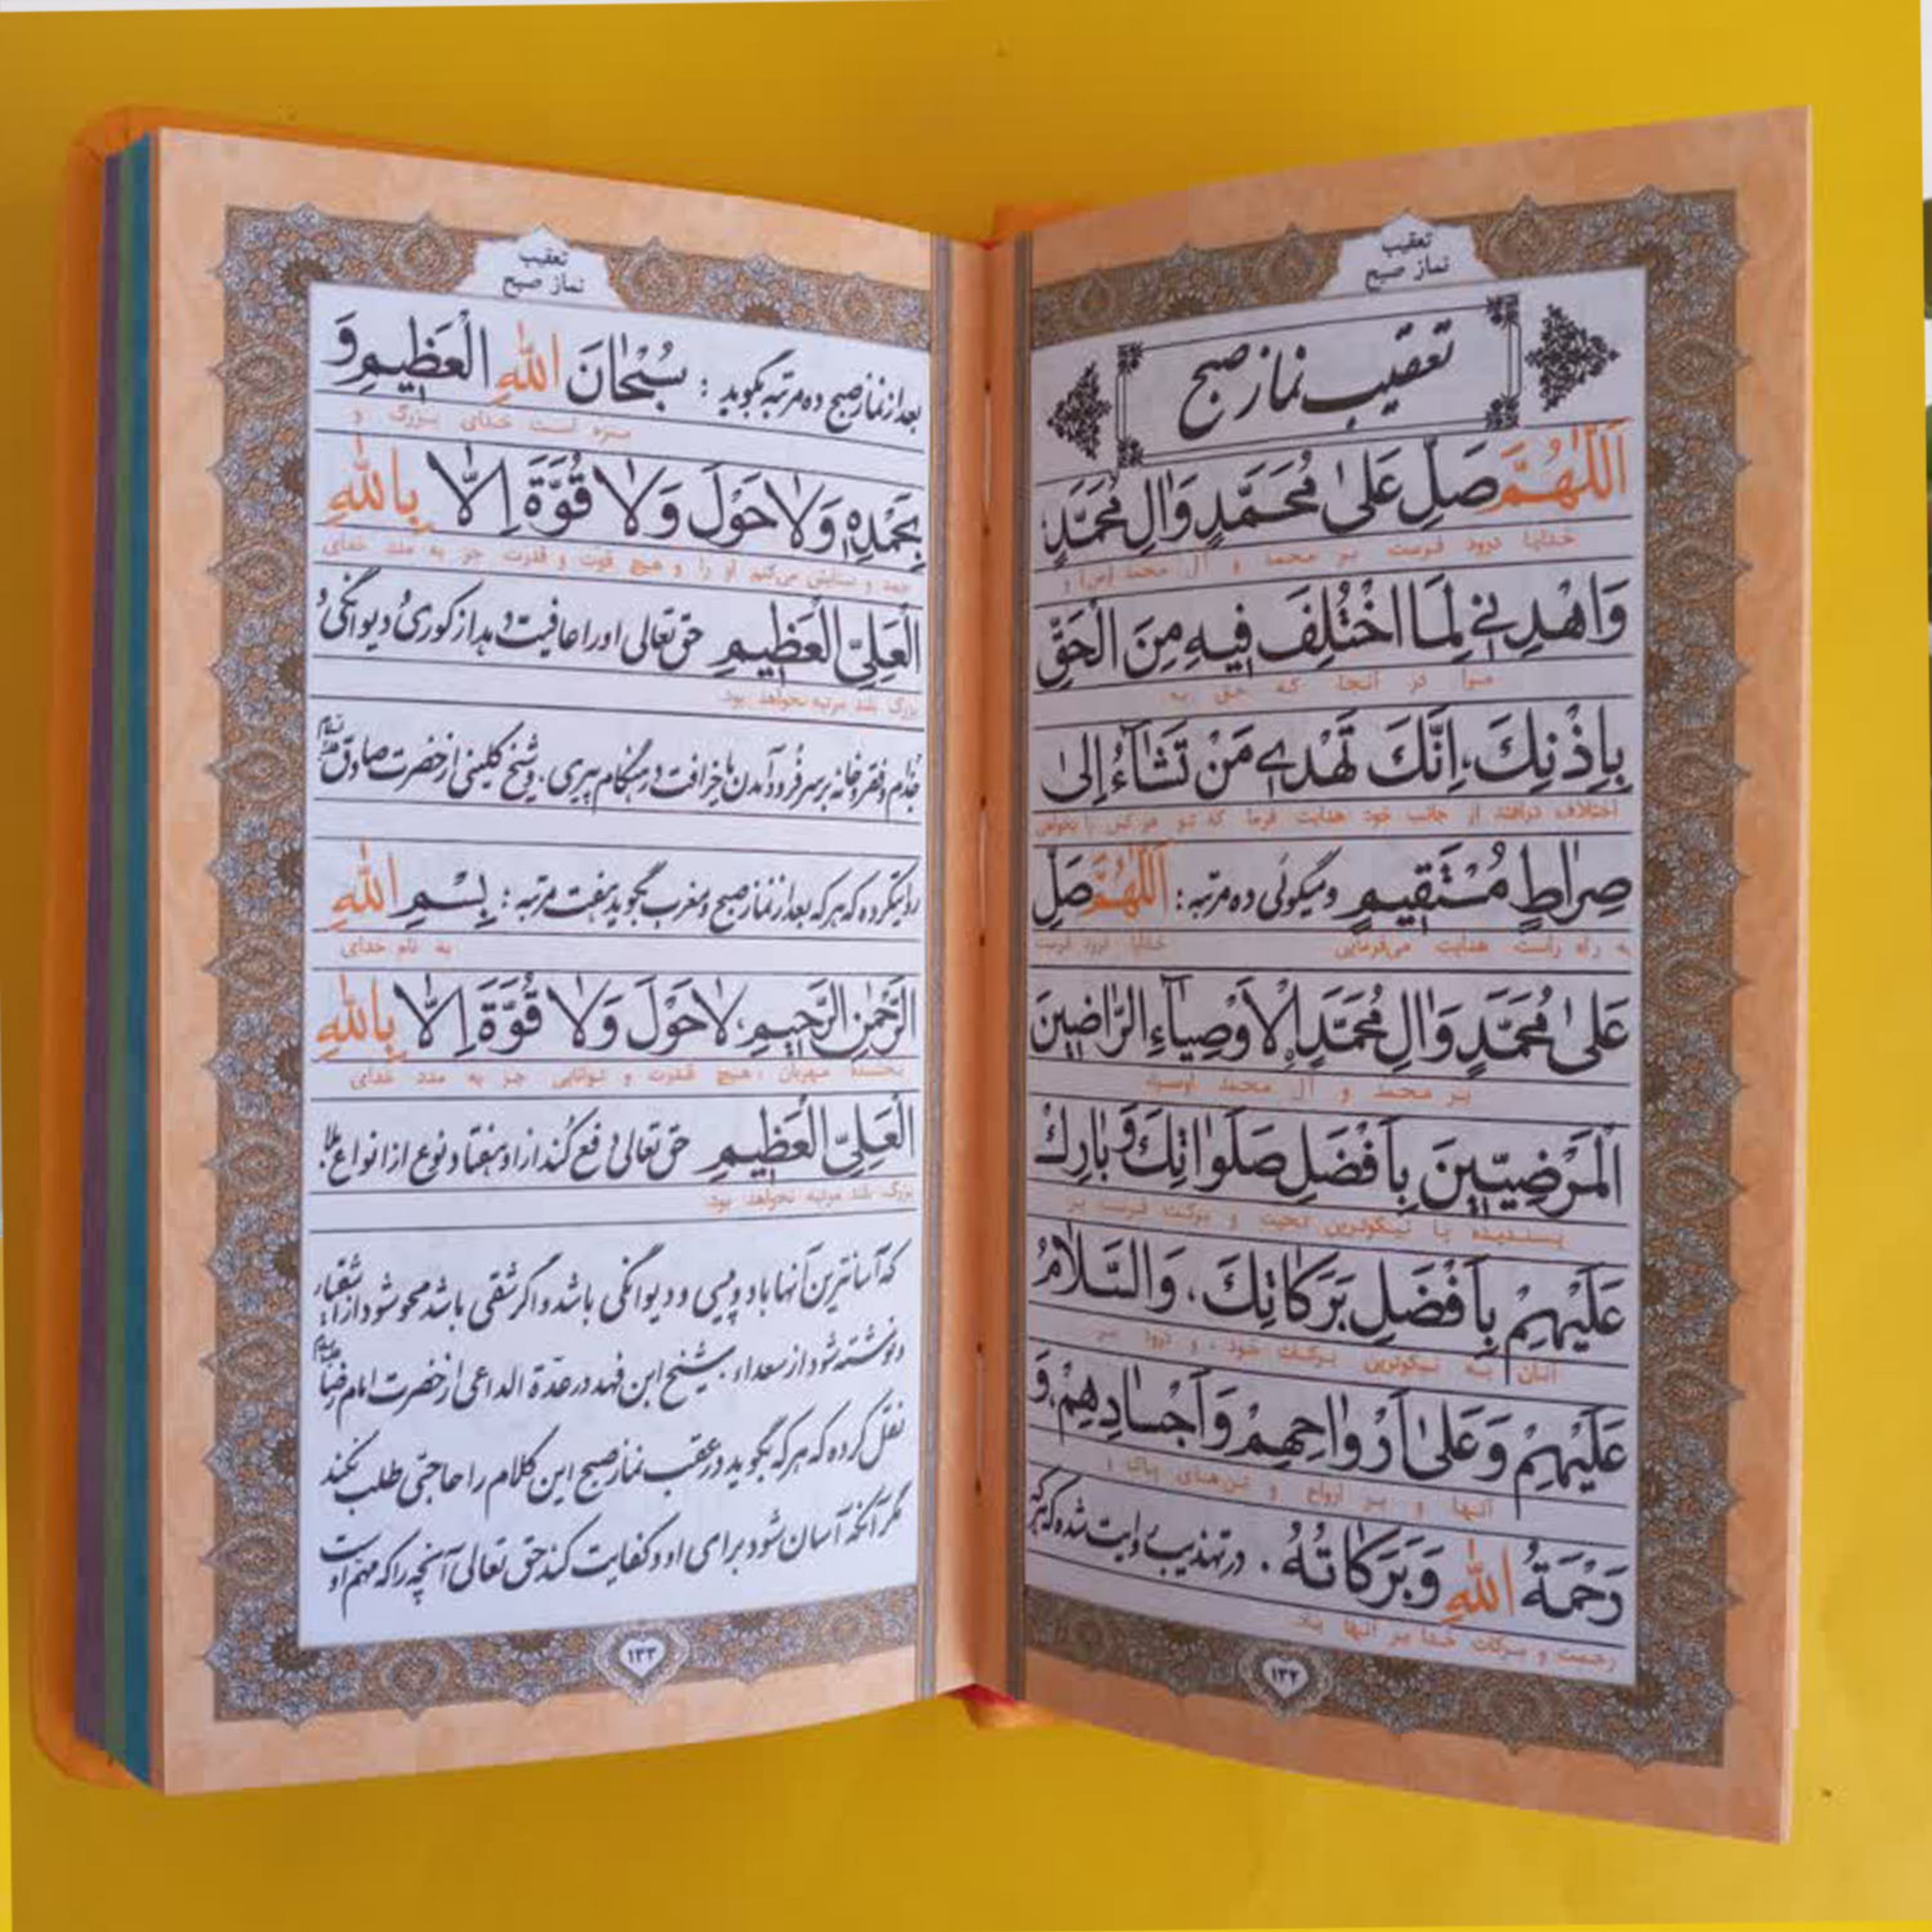 تعقیب
نماز صبح
تعقیب نماز صبح
اَللّٰهُمَّ صَلِّ عَلىٰ مُحَمَّدٍ وَاٰلِ مُحَمَّدٍ
خدایا درود فرست بر محمد و آل محمد (ص) و
وَاهْدِنی لِمَا اخْتُلِفَ فیهِ مِنَ الْحَقِّ
مرا در آنجا که حق به
بِاِذْنِكَ، اِنَّكَ تَهْدی مَنْ تَشٰاۤءُ اِلیٰ
اختلاف درافتد از جانب خود هدایت فرما که تو هر کس را بخواهی
صِرٰاطٍ مُسْتَقیمٍ ومیگوئی ده مرتبه : اَللّٰهُمَّ صَلِّ
به راه راست هدایت می‌فرمایی خدایا درود فرست
عَلىٰ مُحَمَّدٍ وَاٰلِ مُحَمَّدٍ اِلْاَوْصِیاۤءِ الرّٰاضینَ
بر محمد و آل محمد اوصیاء
الْمَرْضِیّینَ بِاَفْضَلِ صَلَوٰاتِكَ وَبٰارِكْ
پسندیده با نیکوترین تحیت و برکت فرست بر
عَلَیْهِمْ بِاَفْضَلِ بَرَكٰاتِكَ، وَالسَّلامُ
آنان به نیکوترین برکات خود ، و درود بر
عَلَیْهِمْ وَعَلىٰ اَرْوٰاحِهِمْ وَاَجْسٰادِهِمْ، وَ
آنها و بر ارواح و تن‌های پاک و
رَحْمَةُ اللّٰهِ وَبَرَكٰاتُهُ . در تهذیب روایت شده که هرکه
رحمت و برکات خدا بر آنها باد.
۱۳۲
تعقیب
نماز صبح
بعد از نماز صبح ده مرتبه بگوید : سُبْحٰانَ اللّٰهِ الْعَظیمِ وَ
منزه است خدای بزرگ و
بِحَمْدِهِ وَلاٰ حَوْلَ وَلاٰ قُوَّةَ اِلاّٰ بِاللّٰهِ
حمد و ستایش می‌کنم او را و هیچ قوت و قدرت جز به مدد خدای
الْعَلِیِّ الْعَظیمِ حق تعالی او را عافیت دهد از کوری و دیوانگی و
بزرگ بلند مرتبه نخواهد بود.
جذام و فقر و خانه بر سر فرود آمدن یا خرافت در هنگام پیری. و شیخ کلینی از حضرت صادق علیه السلام
روایت کرده که هر که بعد از نماز صبح و مغرب بگوید هفت مرتبه : بِسْمِ اللّٰهِ
به نام خدای
الرَّحْمٰنِ الرَّحیمِ، لاٰحَوْلَ وَلاٰ قُوَّةَ اِلاّٰ بِاللّٰهِ
بخشنده مهربان ، هیچ قدرت و توانایی جز به مدد خدای
الْعَلِیِّ الْعَظیمِ حق تعالی دفع کند از او هفتاد نوع از انواع بلا
بزرگ بلند مرتبه نخواهد بود.
که آسانترین آنها باد و پیسی و دیوانگی باشد و اگر شقی باشد محو شود از اشقیاء
و نوشته شود از سعداء. شیخ ابن فهد در عدّة الداعی از حضرت امام رضا علیه السلام
نقل کرده که هر که بگوید در عقب نماز صبح این کلام را حاجتی طلب نکند
مگر آنکه آسان شود برای او و کفایت کند حق تعالی آنچه را که مهم اوست
۱۳۳